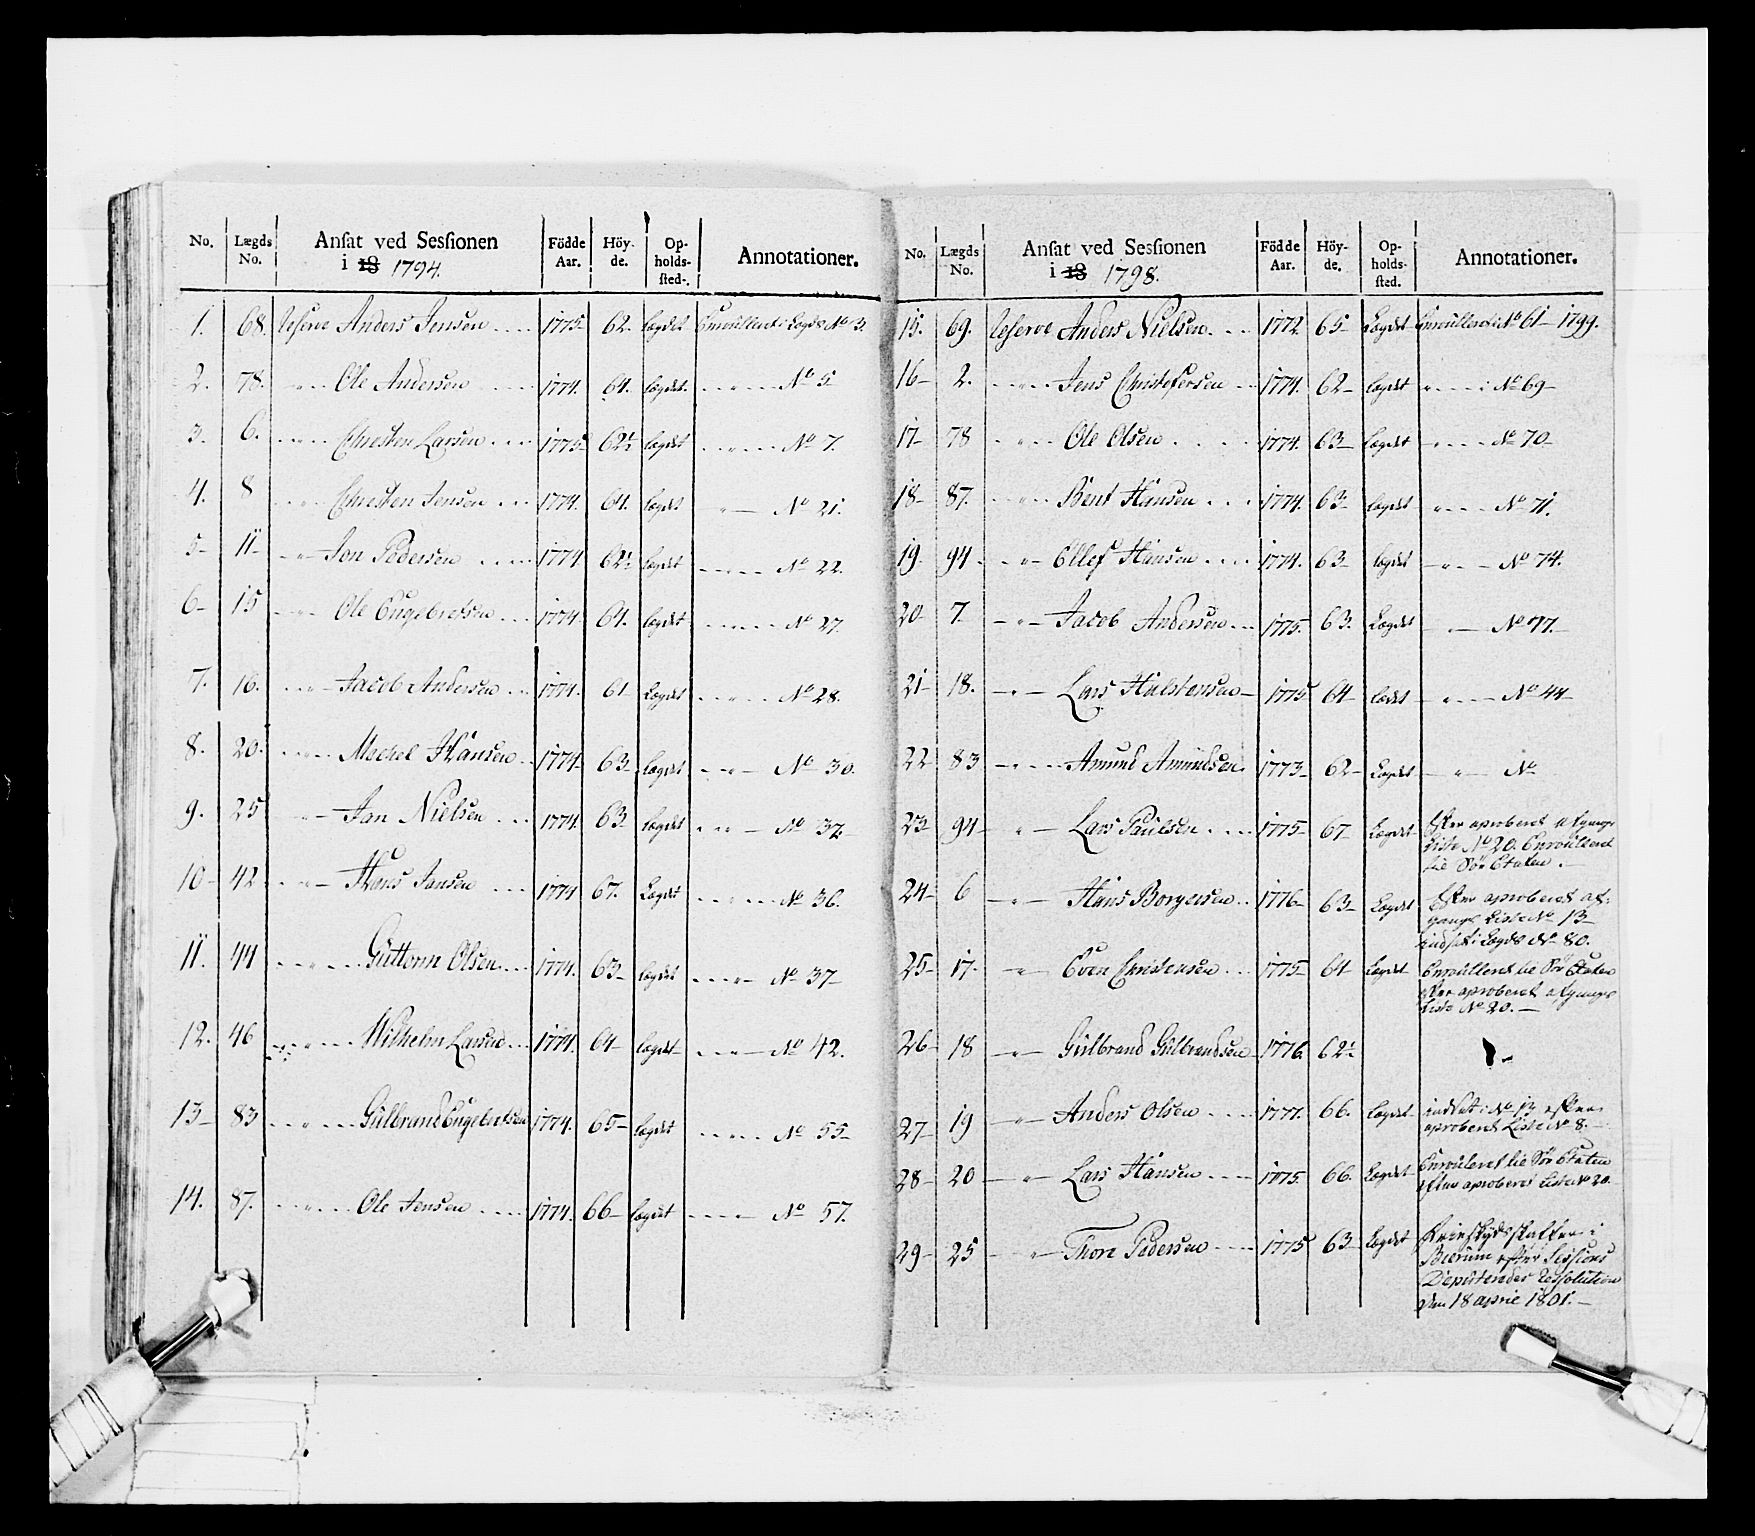 No. Lægds No. Ansat ved Sessionen i 18 1794. Födde Aar. Höy-de. Op-holds-sted. Annotationer.
1. 68. Reserve Anders Jensen 1775 62. Lægdet Enroullert i Lægds No 3.
2. 78. -"- Ole Andersen 1774. 64. lægdet. -"- No 5
3. 6. -"- Christen Larsen 1775 62½ lægdet -"- No 7.
4. 8 -"- Christen Jensen 1774. 64. lægdet -"- No 21.
5- 11- -"- Jon Pedersen 1774 62½ lægdet -"- No 22.
6- 15 -"- Ole Engebretsen 1774 64. lægdet -"- No 27.
7. 16. -"- Jacob Andersen 1774. 61 Lægdet -"- No 28.
8. 20. -"- Mechel Hansen 1774. 63 lægdet -"- No 30.
9. 25 -"- Jan Nielsen 1774. 63 lægdet -"- No 32.
10- 42 -"- Hans Jansen 1774 67. Lægdet -"- No 36.
11. 44 -"- Guttorm Olsen 1774. 63- lægdet -"- No 37-
12. 46 -"- Wilhelm Larsen 1774. 64- lægdet -"- No 42.
13- 83 -"- Gulbrand Engebretsen 1774. 65- lægdet -"- No 55-
14. 87. -"- Ole Jensen 1774. 66- lægdet -"- No 57.
No. Lægds No. Ansat ved Sessionen i 18 1798. Födde Aar. Höy-de. Op-holds-sted. Annotationer.
15. 69. Reserve Anders Nielsen 1772 65- Lægdet Enroullert i No 61- 1799.
16- 2. -"- Jens Christofersen 1774. 62- lægdet -"- i No 69-
17- 78 -"- Ole Olsen 1774. 63- lægdet -"- No 70-
18- 87. -"- Bent Hansen 1774. 63- lægdet -"- No 71.
19. 94 -"- Ellef Hansen 1774. 63- lægdet -"- No 74.
20- 7. -"- Jacob Andersen 1775. 63. Lægdet -"- No 77.
21- 18. -"- Lars Halstensen 1775 64- lædet -"- No 44-
22 83 -"- Amund Amundsen 1773- 62- Lægdet -"- No
23- 94- -"- Lars Paulsen 1775- 67 Lægdet Efter aproberet afgangs
Liste No 20. Enroullert
til Sör Etaten.
24- 6 -"- Hans Borgersen 1776- 63- Lægdet Efter aproberet af-
gangs Liste No 13-
indsat i Lægds No 80.
25- 17- -"- Even Christensen 1775- 64 Lægdet Enroullert til Sör Etaten
efter aproberet afgangs
Liste No 20.-
26- 18 -"- Gulbrand Gulbrandsen 1776. 62½
27- 19 -"- Anders Olsen 1777. 66. Lægdet indsat i No 12 efter
aproberet Liste No 8.-
28- 20 -"- Lars Hansen 1775. 66. Lægdet Enrouleret til Sör Etaten
efter aproberet Liste No 20.
29- 25 -"- Thore Pedersen 1775 63 Lægdet i
Bærum efter Sessions
Deputeredes Ressolution
den 18 april 1801.-